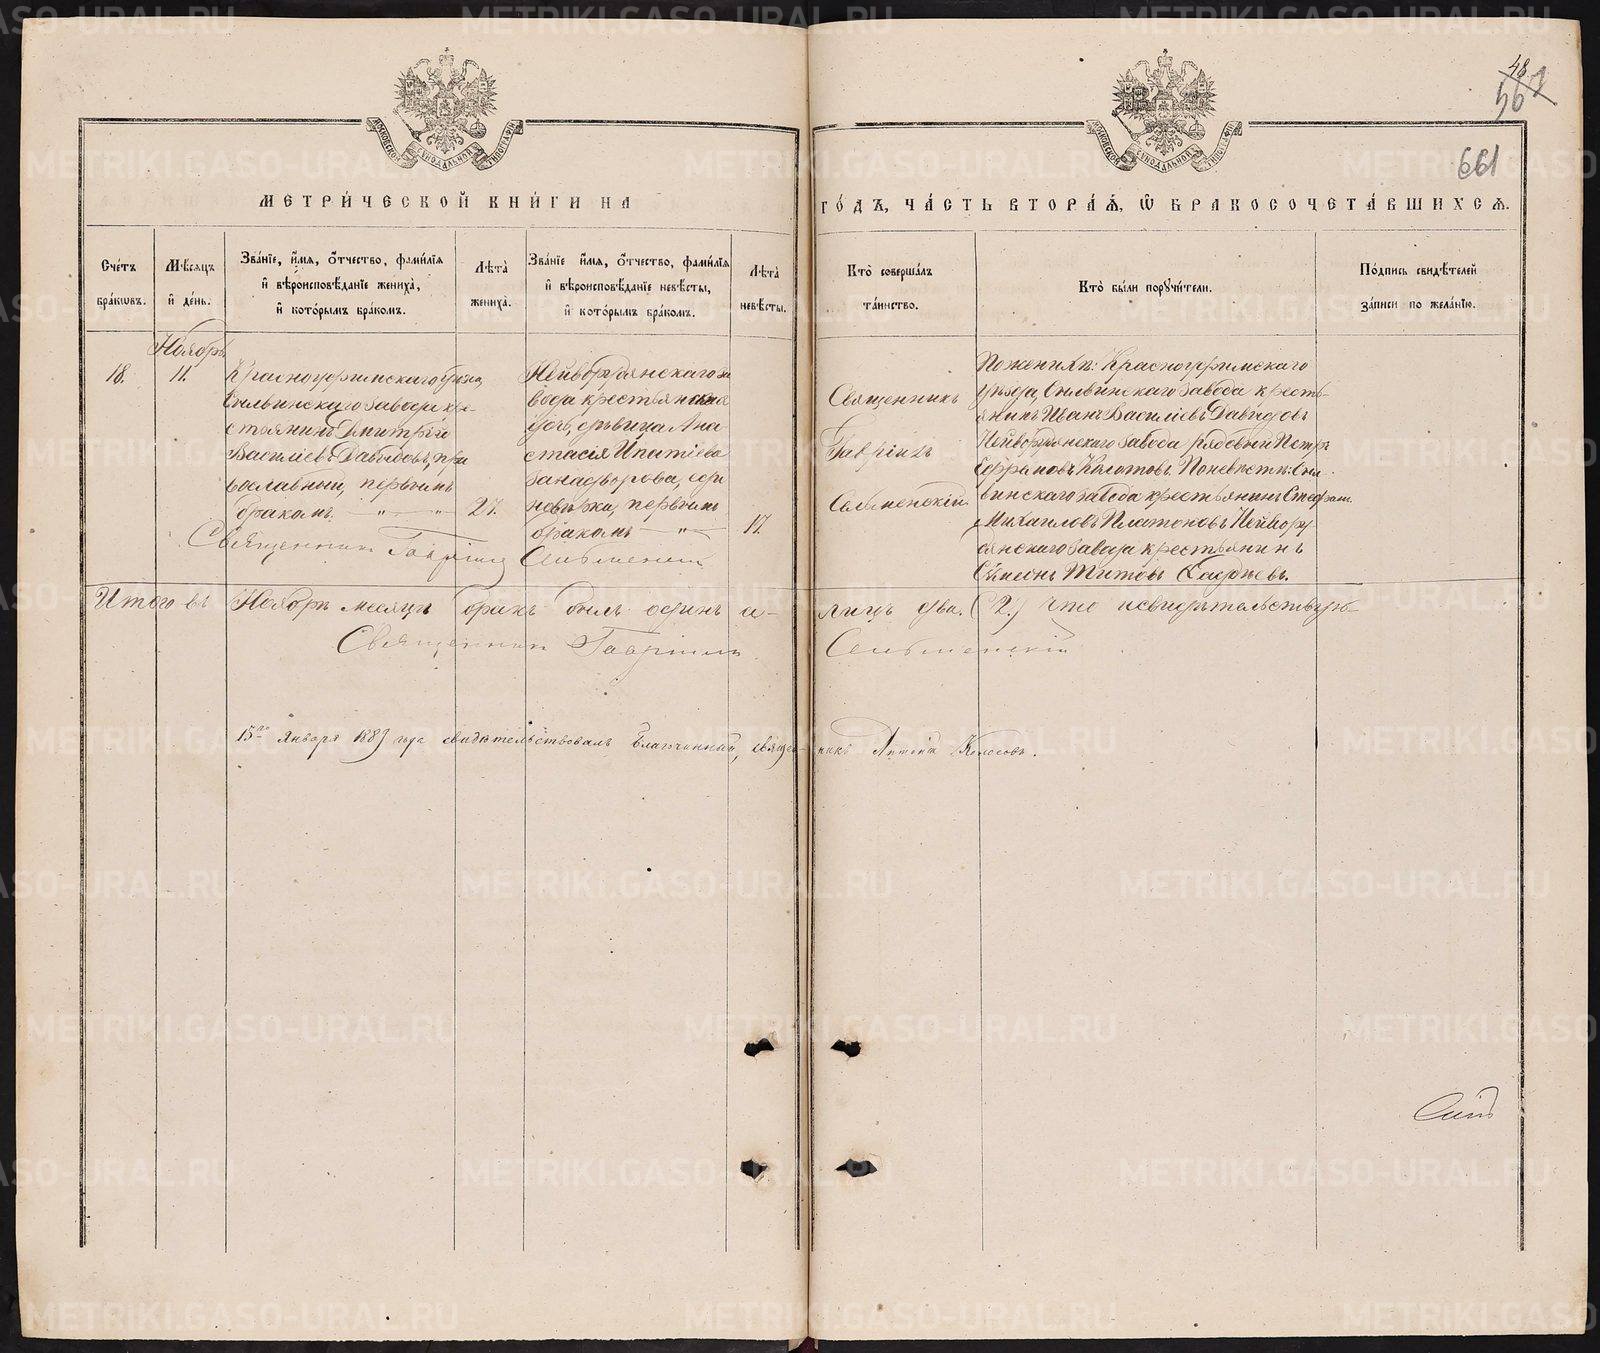 METRIKI.GASO-URAL.RU
48
562
661
МОСКОВСКОЙ СѴНОДАЛЬНОЙ ТИПОГРАФІИ
МОСКОВСКОЙ СѴНОДАЛЬНОЙ ТИПОГРАФІИ
МЕТРИ́ЧЕСКОЙ КНИ́ГИ НА ГО́ДЪ, ЧА́СТЬ ВТОРА́Ѧ, Ѽ БРАКОСОЧЕТА́ВШИХСѦ.
Сче́тъ
бра́кѡвъ.
Мѣ́сѧцъ
и҆ де́нь.
Зва́нїе, и҆́мѧ, ѻ҆́тчество, фами́лїѧ
и҆ вѣроисповѣ́данїе жениха̀,
и҆ кото́рымъ бра́комъ.
Лѣ́та̀
жениха̀.
Зва́нїе и҆́мѧ, ѻ҆́тчество, фами́лїѧ
и҆ вѣроисповѣ́данїе невѣ́сты,
и҆ кото́рымъ бра́комъ.
Лѣ́та̀
невѣ́сты.
Кто̀ соверша́лъ
та́инство.
Кто̀ бы́ли порꙋчи́тели.
По́дпись свидѣ́телей
за́писи по жела́нїю.
Ноябрь
18.
11.
Красноуфимскаго уѣзда,
Сылвинскаго завода кре-
стьянинъ Димитрій
Василіевъ Давыдовъ, пра
вославный, первымъ
бракомъ. — " — "
27.
Нейворудянскаго за
вода крестьянина
дочь, дѣвица Ана
стасія Ипатіева
Занадворова, еди
новѣрка, первымъ
бракомъ — " —
17.
Священникъ
Гавріилъ
Сельменскій
Поженихѣ: Красноуфимскаго
уѣзда, Сылвинскаго завода кресть-
янинъ Иванъ Василіевъ Давыдовъ
Нейворудянскаго завода рядовый Петръ
Ефремовъ Колотовъ. Поневѣстѣ: Сыл-
винскаго завода крестьянинъ Стефанъ
Михаиловъ Платоновъ Нейвору-
дянскаго завода крестьянинъ
Симеонъ Титовъ
Священникъ Гавріилъ Сельменскій
Итого въ Ноябрѣ месяцѣ бракъ былъ одинъ а лицъ два. (2.) что исвидѣтельствую
Священникъ Гавріилъ Сельменскій
15го Января 1889 года свидѣтельствовалъ Благочинный, священникъ Колосовъ.